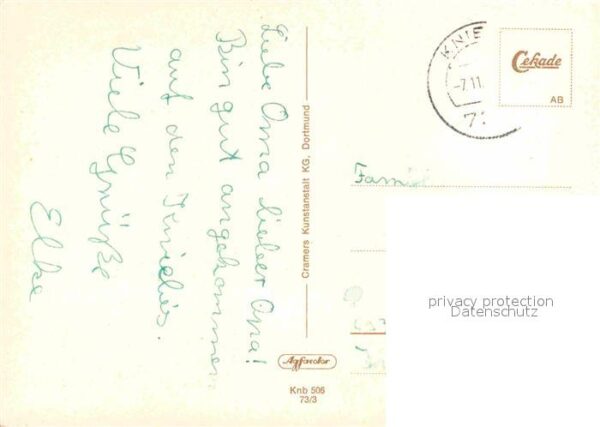 Liebe Oma lieber Opa!
Bin gut angekommen
auf den Kniebis.
Viele Grüße
Elke
Cramers Kunstanstalt KG, Dortmund
Agfacolor
Knb 506
73/3
KNIE
-7.11.
Cekade
AB
Fami
privacy protection
Datenschutz